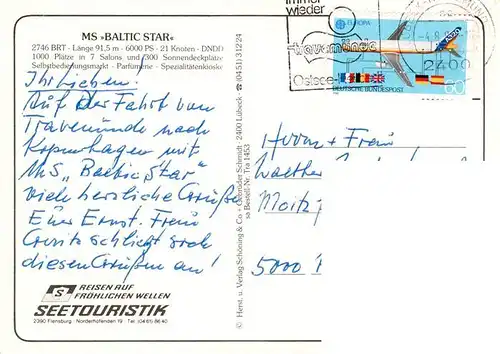 MS »BALTIC STAR«
2746 BRT - Länge 91,5 m - 6000 PS - 21 Knoten - DNDD
1000 Plätze in 7 Salons und 300 Sonnendeckplätz
Selbstbedienungsmarkt - Parfümerie - Spezialitätenkiosk
Ihr Lieben!
Auf der Fahrt von
Travemünde nach
Kopenhagen mit
MS „Baltic Star"
viele herzliche Grüße
Euer Ernst. Frau
schließt sich
diesen Grüßen an!
S
REISEN AUF
FRÖHLICHEN WELLEN
SEETOURISTIK
2390 Flensburg · Norderhofenden 19 · Tel. (0461) 8640
© Herst. u. Verlag Schöning & Co + Gebrüder Schmidt · 2400 Lübeck · ☎ (0451) 31224
sa Bestell-Nr. Tra 1453
immer
wieder
travemünde
Ostsee
EUROPA
-4.8.
2400
DEUTSCHE BUNDESPOST
60
Herrn + Frau
Walther
Moitz
5000